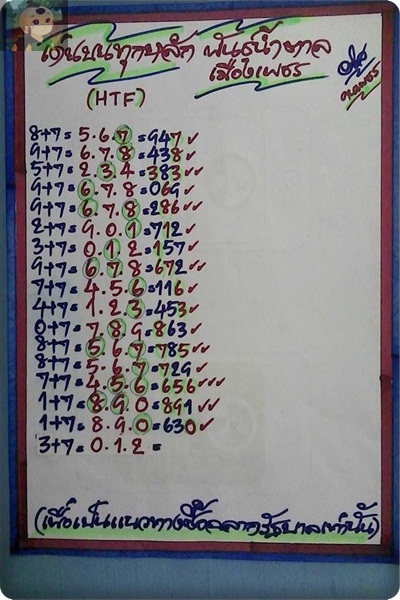 เด่นบนทุกหลัก พันธ์น้ำตาล
เมืองเพชร
(HTF)
8+7= 5.6.7 =947✓
9+7= 6.7.8 =438✓
5+7= 2.3.4 =383✓✓
9+7= 6.7.8 =069✓
9+7= 6.7.8 =286✓✓
2+7= 9.0.1 =712✓
3+7= 0.1.2 =157✓
9+7= 6.7.8 =672✓✓
7+7= 4.5.6 =116✓
4+7= 1.2.3 =453✓
0+7= 7.8.9 =863✓
8+7= 5.6.7 =785✓✓
8+7= 5.6.7 =729✓
7+7= 4.5.6 =656✓✓✓
1+7= 8.9.0 =891✓✓
1+7= 8.9.0 =630✓
3+7= 0.1.2 =
(เพื่อเป็นแนวทางซื้อสลากรัฐบาลเท่านั้น)